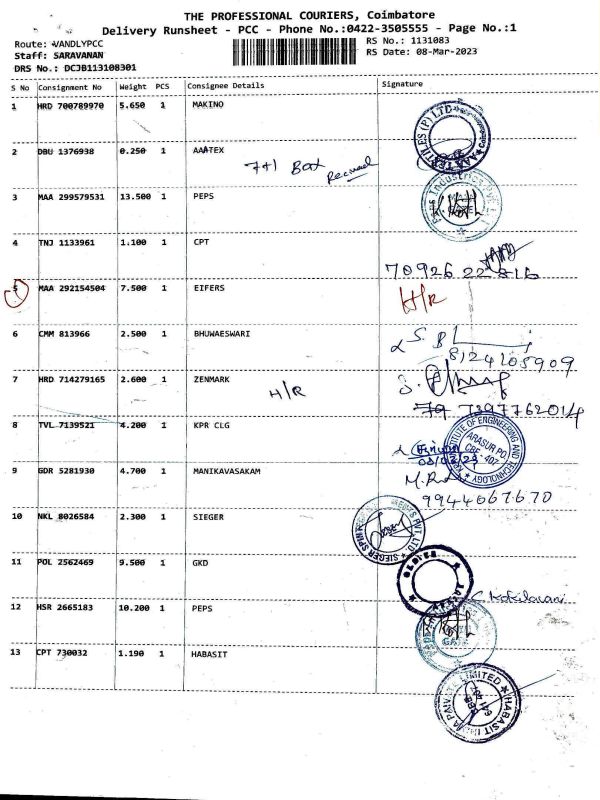 THE PROFESSIONAL COURIERS, Coimbatore
Delivery Runsheet - PCC - Phone No.:0422-3505555 - Page No.:1
Route: VANDLYPCC
RS No.: 1131083
Staff: SARAVANAN
RS Date: 08-Mar-2023
DRS No.: DCJB113108301
S No Consignment No Weight PCS Consignee Details Signature
1 HRD 700789970 5.650 1 MAKINO
2 DBU 1376938 0.250 1 AAATEX
AAA TEXTILES (P) LTD
3 MAA 299579531 13.500 1 PEPS
4 TNJ 1133961 1.100 1 CPT
70926 22 816
5 MAA 292154504 7.500 1 EIFERS
H/R
6 CMM 813966 2.500 1 BHUWAESWARI
8124205909
7 HRD 714279165 2.600 1 ZENMARK
H/R
79 7397762014
8 TVL 7139521 4.200 1 KPR CLG
INSTITUTE OF ENGINEERING AND TECHNOLOGY
ARASUR PO.
CBE - 407
9 GDR 5281930 4.700 1 MANIKAVASAKAM
9944067670
10 NKL 8026584 2.300 1 SIEGER
11 POL 2562469 9.500 1 GKD
C. Kokilavani
12 HSR 2665183 10.200 1 PEPS
13 CPT 730032 1.190 1 HABASIT